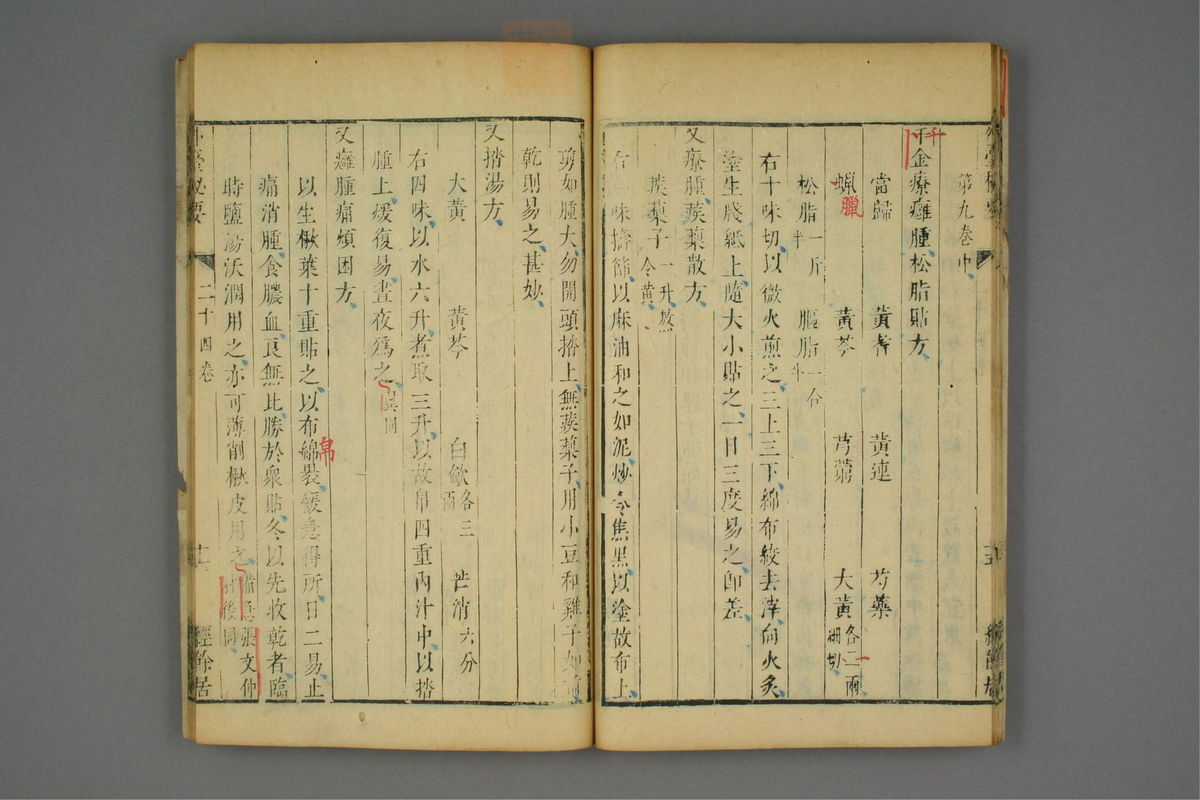 第九卷中
千金療癰腫松脂貼方
千
當歸 黃耆 黃連 芍藥
蠟 黃芩 芎藭 大黃各二兩細切
臘
一
松脂一斤半 䐁脂一合半
右十味切以微火煎之三上三下綿布絞去滓向火炙
塗生牋紙上隨大小貼之一日三度易之卽差
又療腫蒺藜散方
蒺藜子一升熬令黃
右一味擣篩以麻油和之如泥炒令焦黑以塗故布上
剪如腫大勿開頭揩上無蒺藜子用小豆和雞子如前
乾則易之甚妙
又揩湯方
大黃 黃芩 白歛各三兩 芒消六分
右四味以水六升煮取三升以故帛四重內汁中以揩
腫上緩復易晝夜爲之
又癰腫痛煩困方
以生楸葉十重貼之以布綿裹緩急得所日二易止
帛
痛消腫食膿血良無比勝於衆貼冬以先收乾者臨
時鹽湯沃潤用之亦可薄削楸皮用之備急張文仲肘後同
外臺秘要 二十四卷 經餘居